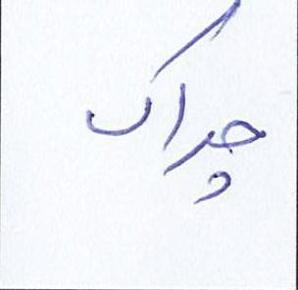 چراک